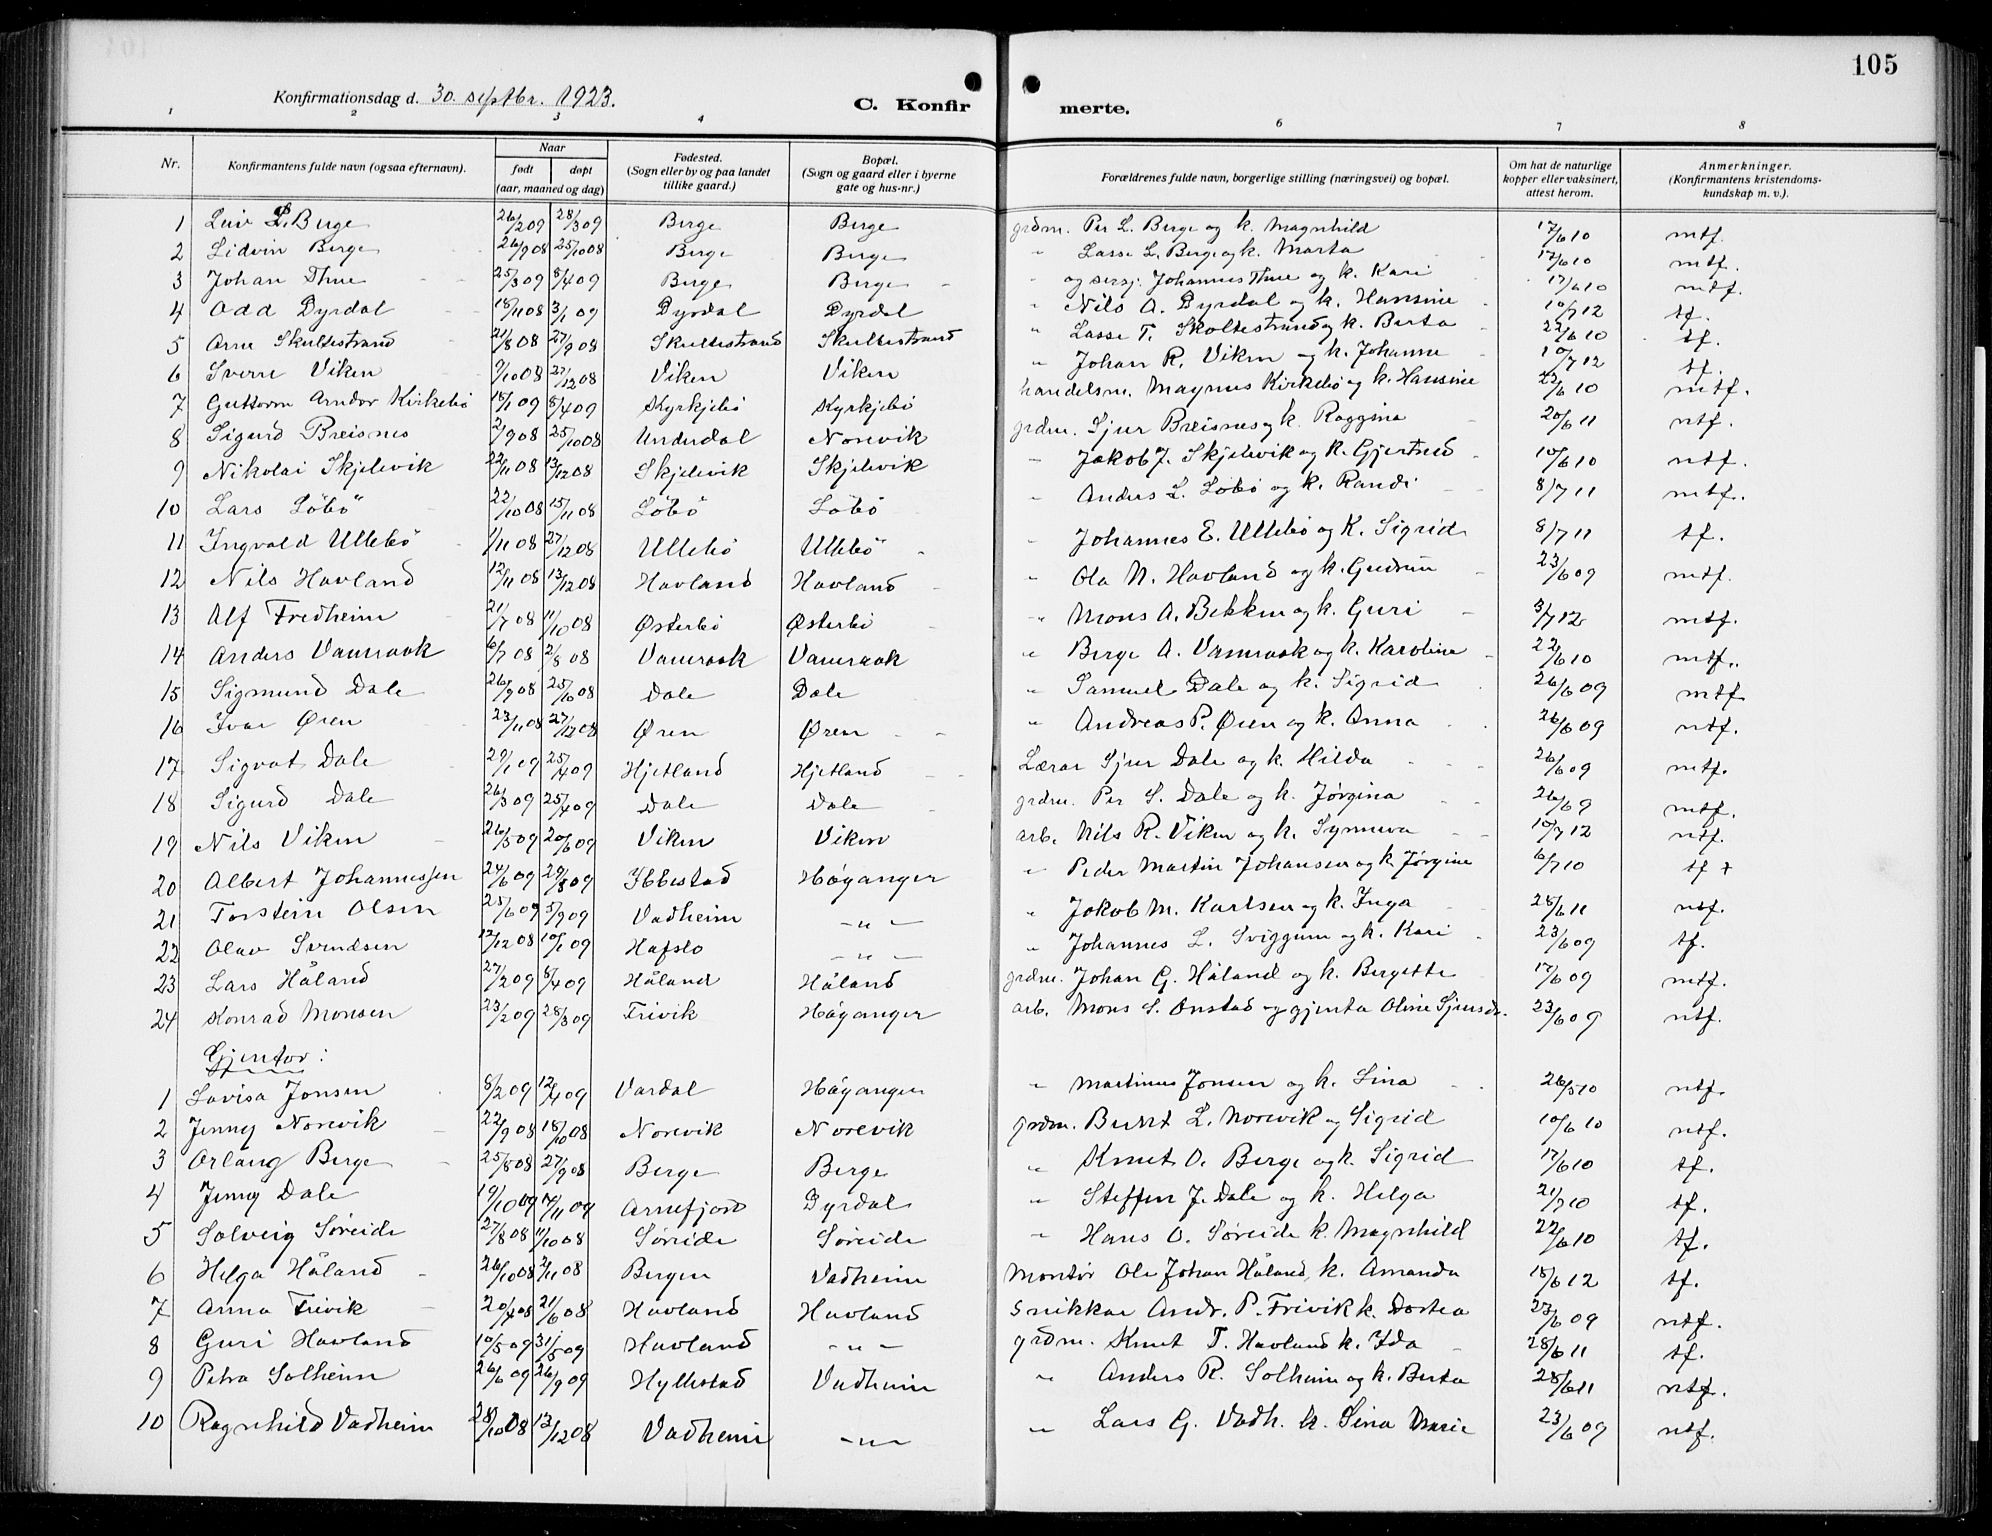 105
Konfirmationsdag d. 30. septbr. 1923.
C. Konfir merte.
1 2 3 4 6 7 8
Nr. Konfirmantens fulde navn (ogsaa efternavn). Naar født døpt (aar, maaned og dag) Fødested. (Sogn eller by og paa landet tillike gaard.) Bopæl. (Sogn og gaard eller i byerne gate og hus-nr.) Forældrenes fulde navn, borgerlige stilling (næringsvei) og bopæl. Om hat de naturlige kopper eller vaksinert, attest herom. Anmerkninger. (Konfirmantens kristendoms-kundskap m. v.).
1 Leiv P. Berge 26/2 09 28/3 09 Berge Berge grdm. Per L. Berge og k. Magnhild 17/6 10 mtf.
2 Lidvin Berge 26/9 08 25/10 08 Berge Berge " Lasse L. Berge og k. Marta 17/6 10 mtf.
3 Johan Thue 25/3 09 8/4 09 Berge Berge " og sersj. Johannes Thue og k. Kari 17/6 10 mtf.
4 Odd Dyrdal 18/11 08 3/1 09 Dyrdal Dyrdal " Nils A. Dyrdal og k. Hansine 10/7 12 tf.
5 Arne Skultestrand 21/8 08 27/9 08 Skultestrand Skultestrand " Lasse T. Skoltestrand og k. Berta 22/6 10 tf.
6 Sverre Viken 9/10 08 27/12 08 Viken Viken " Johan R. Viken og k. Johanne 10/7 12 tf.
7 Guttorm Arndor Kirkebö 18/1 09 8/4 09 Kyrkjebö Kyrkjebö handelsm. Magnus Kirkebø og k. Hansine 22/6 10 mtf.
8 Sigurd Breisnes 2/9 08 25/10 08 Underdal Norevik grdm. Sjur Breisnes og k. Raggina 20/6 11 ntf.
9 Nikolai Skjelevik 22/11 08 13/12 08 Skjelevik Skjelevik " Jakob J. Skjelevik og k. Gjertrud 10/6 10 ntf.
10 Lars Löbö 22/10 08 15/11 08 Löbö Löbö " Anders L. Löbö og k. Randi 8/7 11 mtf.
11 Ingvald Ullebö 1/11 08 27/12 08 Ullebö Ullebö " Johannes E. Ullebø og K. Sigrid 8/7 11 tf.
12 Nils Havland 12/11 08 13/12 08 Havland Havland " Ola N. Havland og k. Gudrun 23/6 09 mtf.
13 Alf Fredheim 21/7 08 11/10 08 Østerbö Østerbö " Mons A. Bekken og k. Guri 3/7 12 mtf.
14 Anders Vamraak 6/7 08 2/8 08 Vamraak Vamraak " Berge A. Vamraak og k. Karoline 22/6 10 mtf.
15 Sigmund Dale 26/9 08 25/10 08 Dale Dale " Samuel Dale og k. Sigrid 26/6 09 mtf
16 Ivar Øren 23/11 08 27/12 08 Øren Øren " Andreas P. Øren og k. Anna 26/6 09 ntf.
17 Sigvat Dale 29/1 09 25/4 09 Hjetland Hjetland Lærar Sjur Dale og k. Hilda 26/6 09 mtf.
18 Sigurd Dale 26/3 09 25/4 09 Dale Dale grdm. Per S. Dale og k. Jørgina 26/6 9 mtf.
19 Nils Viken 26/5 09 20/6 09 Viken Viken arb. Nils R. Viken og k. Synneva 10/7 12 ntf.
20 Albert Johannessen 24/6 09 29/8 09 Ibbestad Höganger " Peder Martin Johansen og k. Jørgine 6/7 10 tf +
21 Torstein Olsen 25/6 09 5/9 09 Vadheim - " - " Jakob M. Karlsen og k. Inga 28/6 11 ntf.
22 Olav Svendsen 12/12 08 10/1 09 Hafslo - " - " Johannes L. Sviggum og k. Kari 23/6 09 tf.
23 Lars Håland 27/2 09 8/4 09 Håland Håland grdm. Johan G. Håland og k. Bergitte 17/6 09 mtf.
24 Konrad Monsen 23/2 09 28/3 09 Frivik Höganger arb. Mons S. Onstad og gjenta Oline Sjursdr. 23/6 09 ntf.
Gjentor:
1 Lovisa Jonsen 8/2 09 12/4 09 Vardal Höganger " Martinus Jonsen og k. Lina 26/5 10 ntf.
2 Jenny Norevik 22/9 08 18/10 08 Norevik Norevik grdm. Berint L. Norevik og Sigrid 10/6 10 ntf.
3 Orlaug Berge 25/8 08 27/9 08 Berge Berge " Knut O. Berge og k. Sigrid 17/6 10 tf.
4 Jenny Dale 19/10 09 14/11 09 Arnefjord Dyrdal " Steffen J. Dale og k. Helga 21/7 10 tf.
5 Solveig Søreide 27/8 08 11/10 08 Søreide Søreide " Hans O. Søreide k. Magnhild 22/6 10 tf.
6 Helga Håland 26/10 08 2/11 08 Bergen Vadheim Montör Ole Johan Håland, k. Amanda 18/6 12 tf.
7 Anna Frivik 20/4 08 21/6 08 Havland Havland Snikkar Andr. P. Frivik k. Dortea 23/6 09 ntf.
8 Guri Havland 10/5 09 31/5 09 Havland - " - grdm. Knut T. Havland k. Ida 28/6 11 tf.
9 Petra Solheim 26/6 09 26/9 09 Hyllestad Vadheim " Anders R. Solheim og k. Berta 28/6 11 ntf.
10 Ragnhild Vadheim 28/10 08 13/12 08 Vadheim - " - " Lars G. Vadh. k. Sina Marie 23/6 09 ntf.